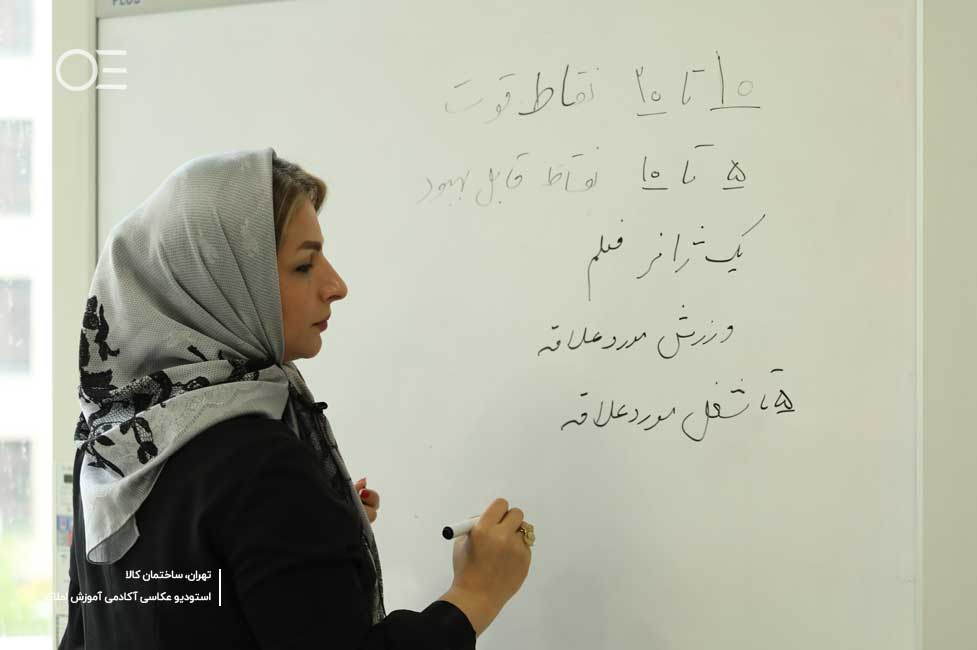 PLUS
OE
۱۰ تا ۲۰ نقاط قوت
۵ تا ۱۰ نقاط قابل بهبود
یک ژانر فیلم
ورزش مورد علاقه
۵ تا شغل مورد علاقه
تهران، ساختمان کالا
استودیو عکاسی آکادمی آموزش املاک